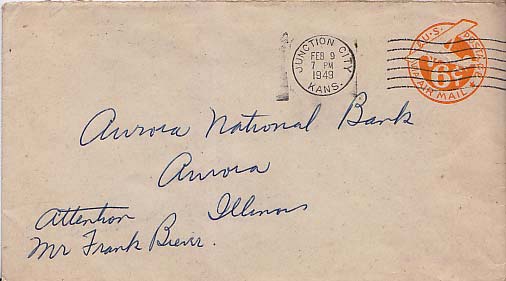 JUNCTION CITY
FEB 9
7 PM
1949
KANS.
U.S. POSTAGE
6¢
VIA AIR MAIL
Aurora National Bank
Aurora
Illinois
Attention
Mr Frank